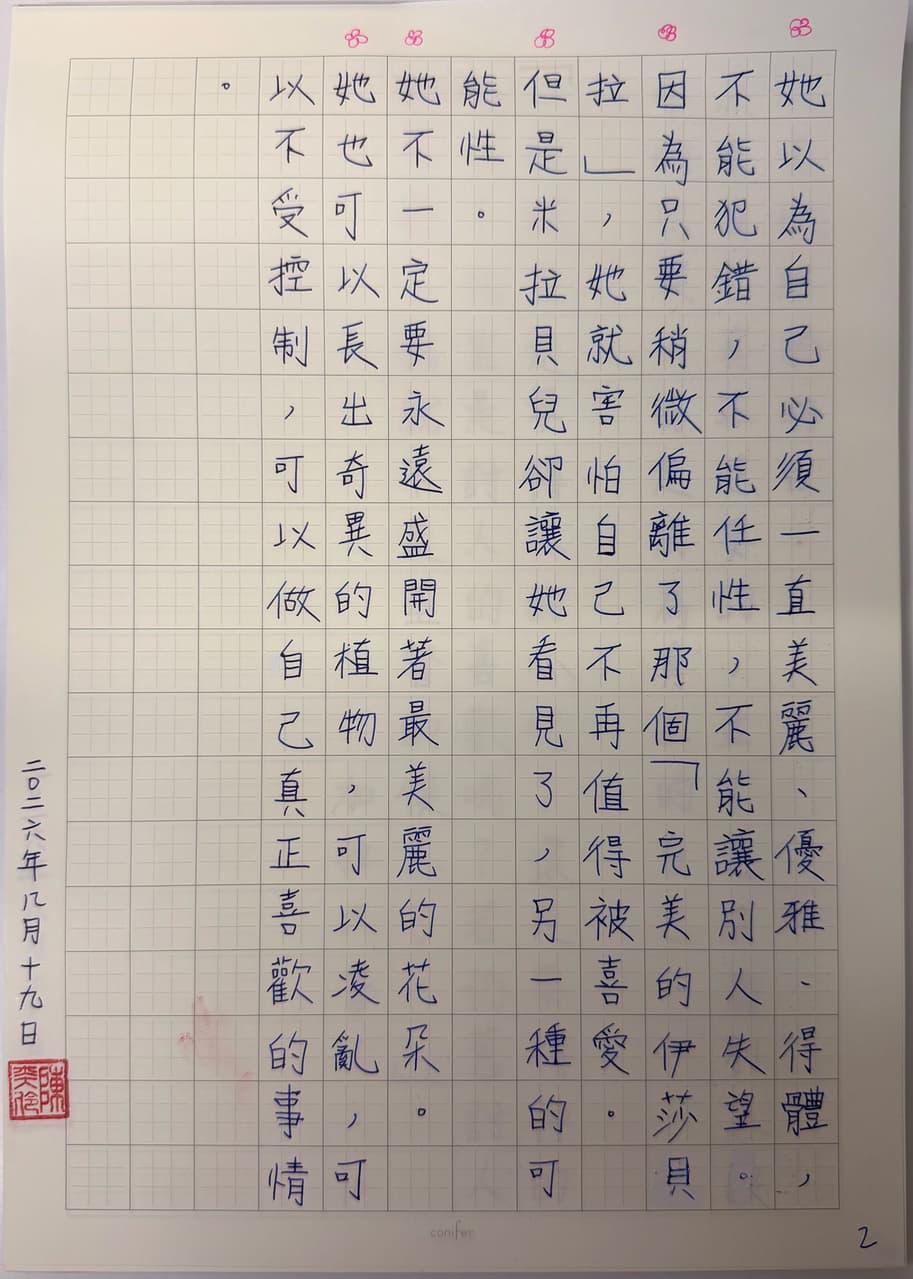 她以為自己必須一直美麗、優雅、得體，
不能犯錯，不能任性，不能讓別人失望。
因為只要稍微偏離了那個「完美的伊莎貝
拉」，她就害怕自己不再值得被喜愛。
但是米拉貝兒卻讓她看見了，另一種的可
能性。
她不一定要永遠盛開著最美麗的花朵。
她也可以長出奇異的植物，可以凌亂，可
以不受控制，可以做自己真正喜歡的事情
。
二〇二六年八月十九日
conifer
2